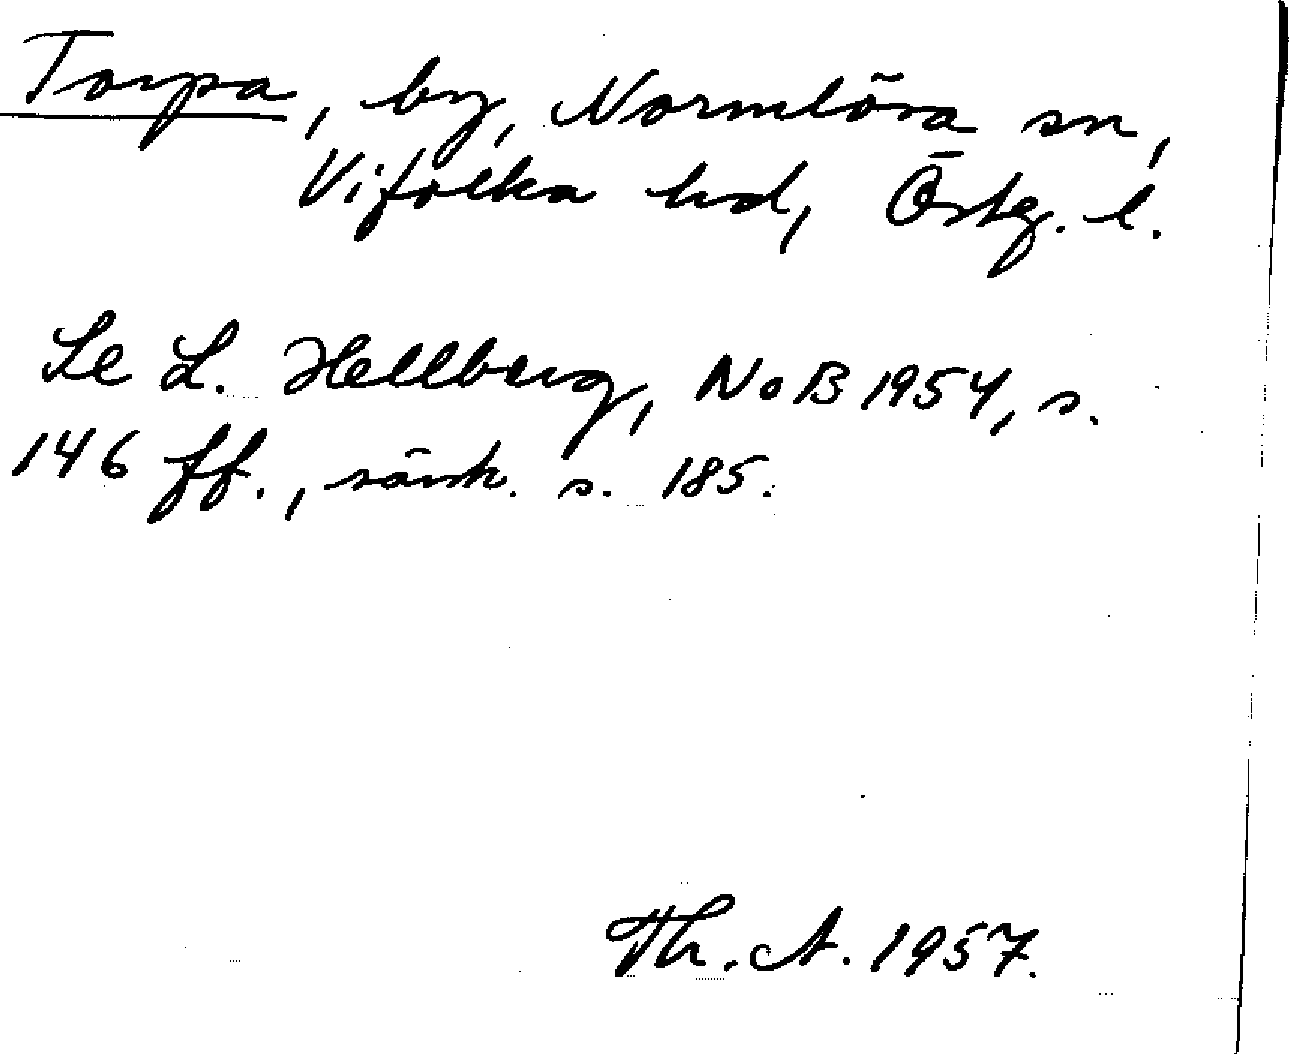 Torpa, by, Normlösa sn,
Vifolka hd, Östg. l.
Se L. Hellberg, NoB 1954, s.
146 ff., särsk. s. 185.
Th. A. 1957.